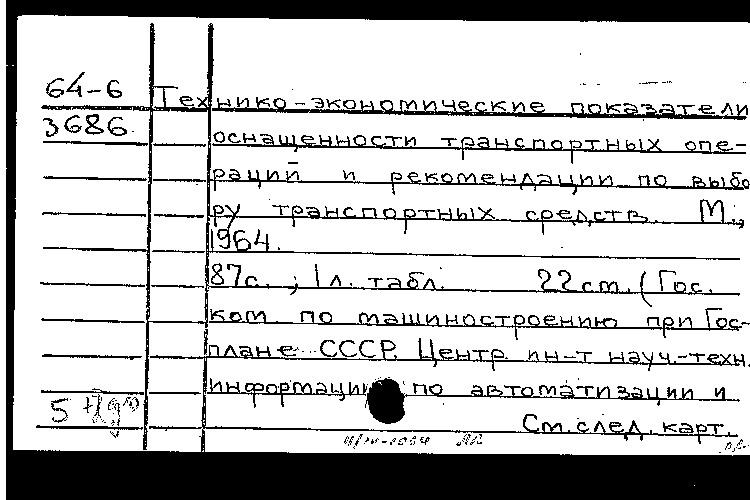 64-6 Технико-экономические показатели
3686 оснащенности транспортных опе-
раций и рекомендации по выбо
ру транспортных средств. М.,
1964.
87с.; 1л. табл. 22см. (Гос.
ком по машиностроению при Гос-
плане СССР. Центр. ин-т науч.-техн.
информации по автоматизации и
5
См. след. карт.